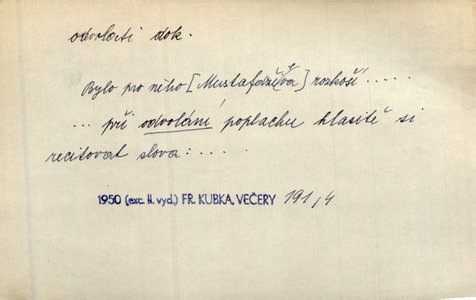 odvolati dok.
Bylo pro něho [Mustafadživa] rozkoší .....
... při odvolání poplachu hlasitě si
recitovat slova: .....
1950 (exc. II. vyd.) FR. KUBKA, VEČERY 191/4